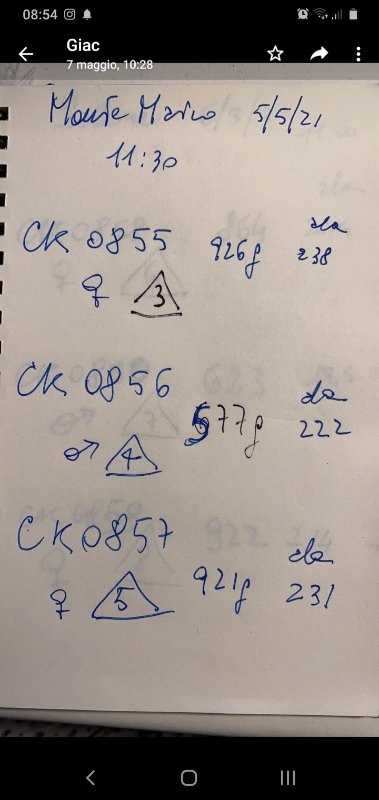 08:54
Giac
7 maggio, 10:28
Monte Mario 5/5/21
11:30
CK 0855 926g ala 238
♀ 3
CK 0856 577g ala 222
♂ 4
CK 0857 921g ala 231
♀ 5